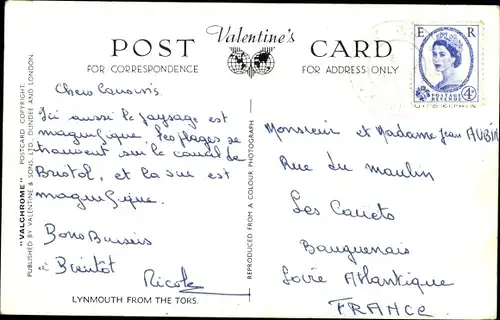 POST Valentine's CARD
FOR CORRESPONDENCE FOR ADDRESS ONLY
"VALCHROME" POSTCARD COPYRIGHT.
PUBLISHED BY VALENTINE & SONS, LTD., DUNDEE AND LONDON.
Chers Cousins.
Ici aussi le paysage est
magnifique. Les plages se
trouvent sur le canal de
Bristol, et la vue est
magnifique.
Bons Baisers
à Bientôt
Nicole
LYNMOUTH FROM THE TORS.
REPRODUCED FROM A COLOUR PHOTOGRAPH
E R
POSTAGE
REVENUE
4D
Monsieur et Madame Jean AUBIN
Rue du moulin
Les Couets
Bouguenais
Loire Atlantique
FRANCE.